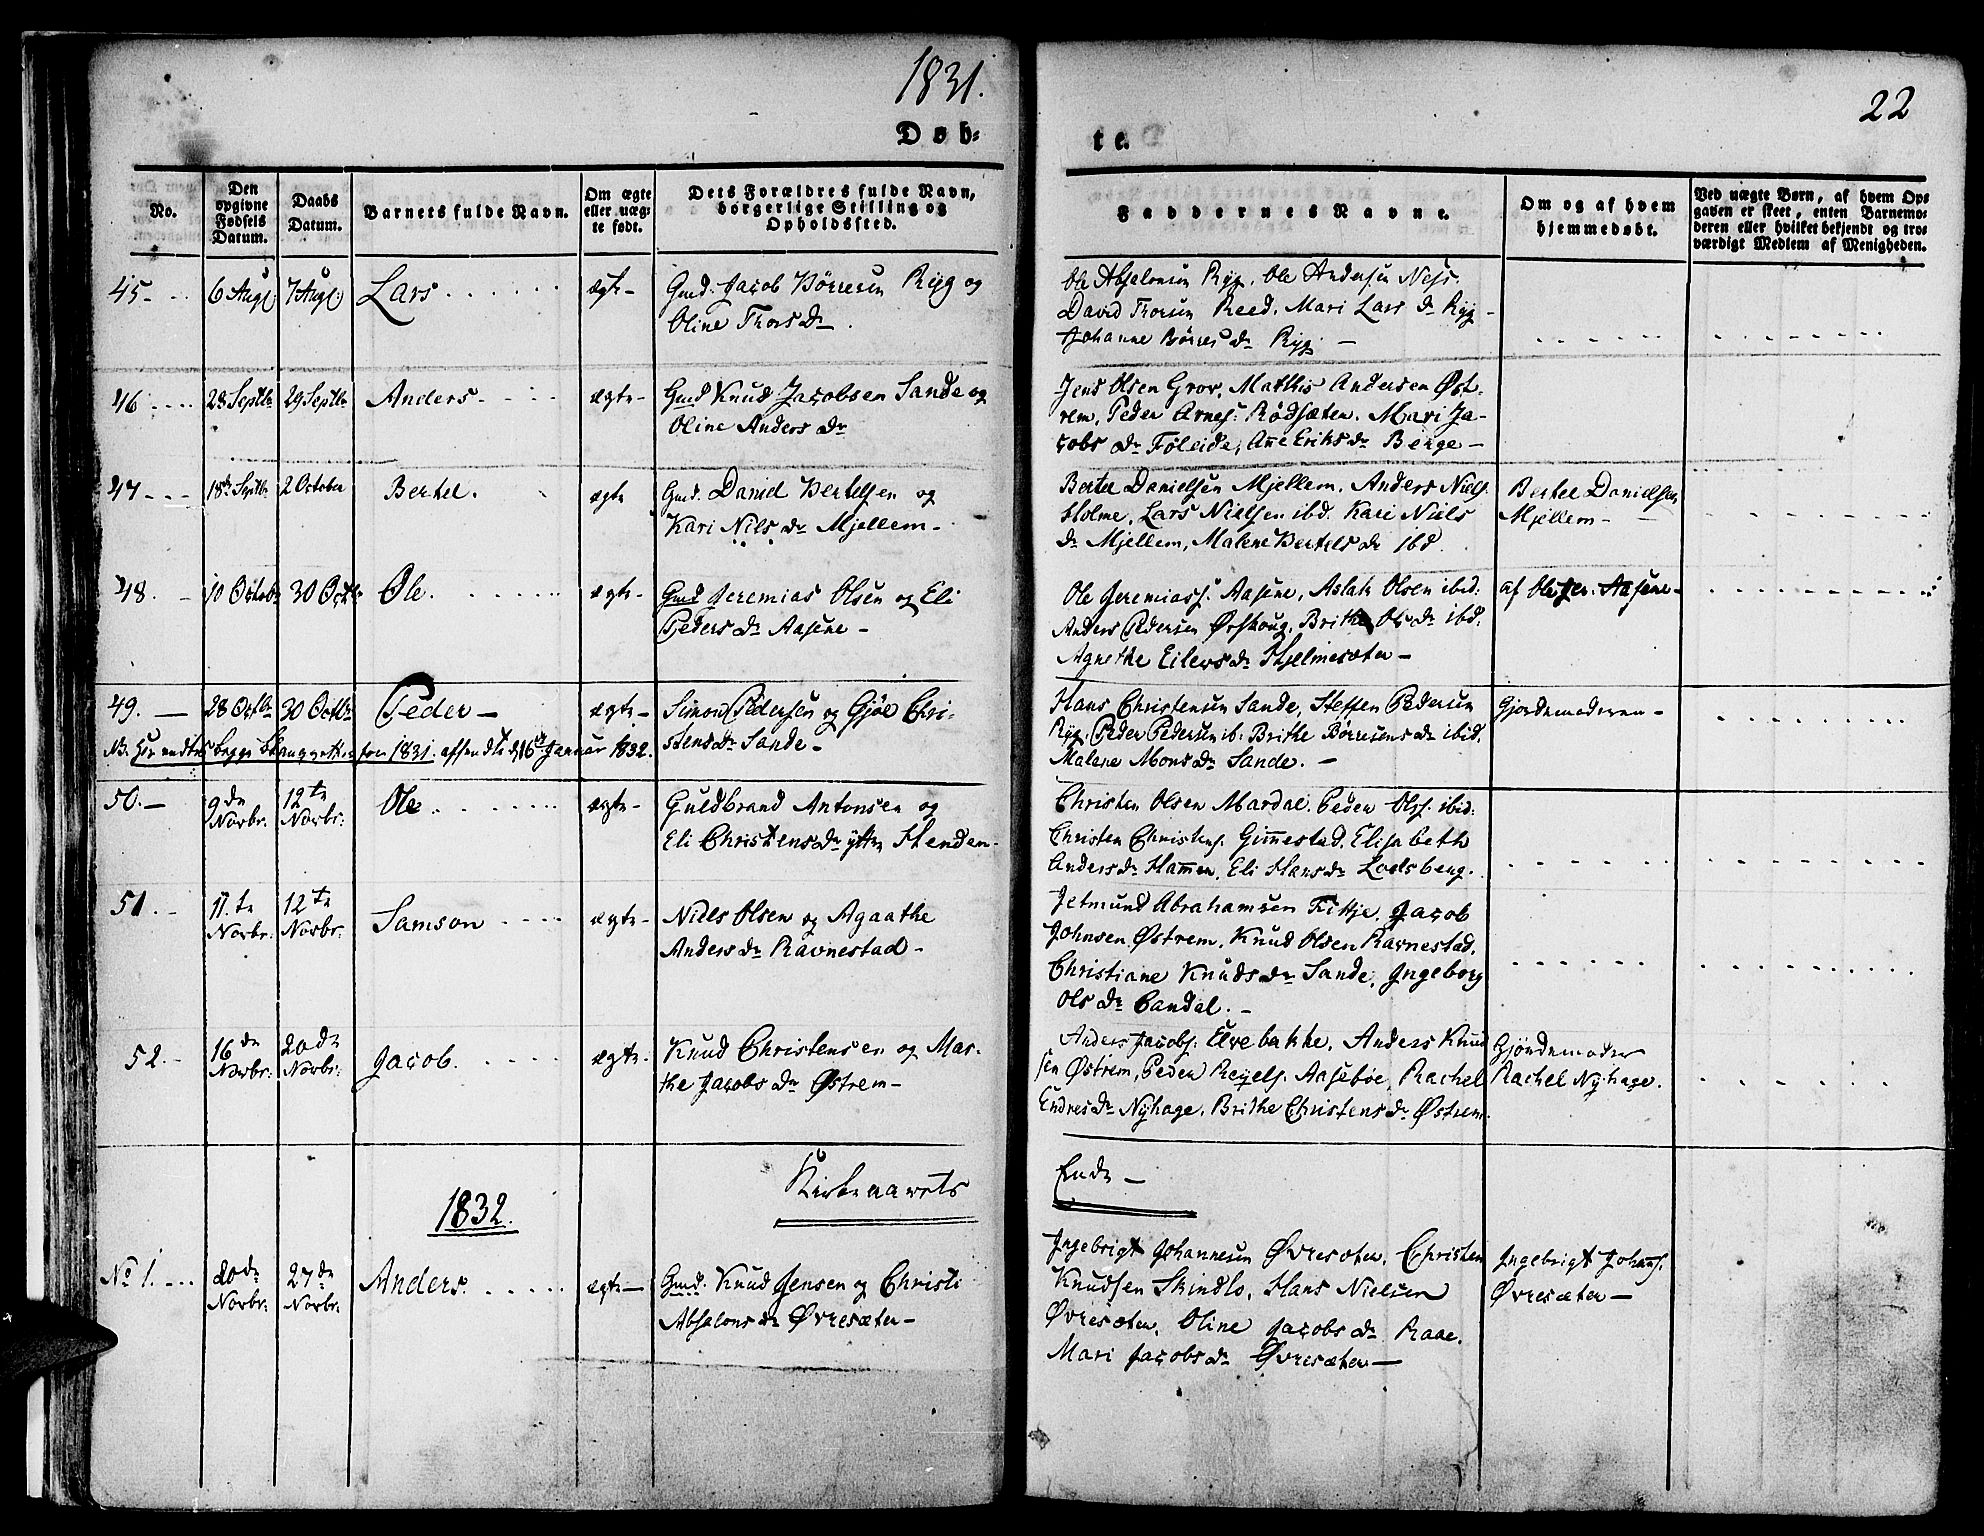 1831.
22
Døb-
te.
No.
Den opgivne Fødsels Datum.
Daabs Datum.
Barnets fulde Navn.
Om ægte eller uægte født.
Dets Forældres fulde Navn, borgerlige Stilling og Opholdssted.
Faddernes Navne.
Om og af hvem hjemmedøbt.
Ved uægte Børn, af hvem Opgaven er skeet, enten Barnemoderen eller hvilket bekjendt og troværdigt Medlem af Menigheden.
45 6 Aug 7 Aug Lars ægte Gmd. Jacob Børresen Ryg og
Oline Thors Dr
Ole Absalonsen Ryg, Ole Andersen Ness.
David Thorsen Reed, Mari Lars Dr Ryg
Johanne Børres Dr Ryg
46 28 Septbr 29 Septbr Anders ægte Gmd Knud Jacobsen Sande og
Oline Anders Dr
Jens Olsen Grov, Matthis Andersen Øst-
rem, Peder Arnes: Rødsæten, Mari Ja-
cobs Dr Føleide, Añe Eriks Dr Berge
47 18de Septbr 2 October Bertel. ægte Gmd. Daniel Bertelsen og
Kari Nils Dr Mjellem
Bertel Danielsen Mjellem, Anders Niels.
Holme, Lars Nielsen ibd. Kari Niels
Dr Mjellem, Malene Bertels Dr ibd.
Bertel Danielsen
Mjellem
48. 10 Octob 30 Octbr Ole. ægte Gmd Jeremias Olsen og Eli
Peders Dr Aasene
Ole Jeremiass. Aasene, Aslak Olsen ibid:
Anders Pedersen Ørskoug, Brithe Ols Dr ibd.
Agnethe Eilers Dr Hjelmesæter
af Ole Jer: Aasene
49. 28 Octbr 30 Octbr Peder ægte Simon Pedersen og Gjøe Chri-
stens Dr Sande
Hans Christensen Sande, Steffen Pedersen
Ryg, Peder Pedersen ib. Brithe Børresens Dr ibid.
Malene Mons Dr Sande.
Gjordemoderen
for 1831. afsendte d. 16de Januar 1832.
50. 9de Novbr. 12te Novbr: Ole ægte Guldbrand Antonsen og
Eli Christens Dr yttre Henden
Christen Olsen Mardal, Peder Olss. ibid:
Christen Christens. Giñestad, Elisabeth
Anders Dr Hamen, Eli Hans Dr Lodsberg.
51. 11.te Novbr: 12te Novbr: Samson ægte Niels Olsen og Agaathe
Anders Dr Ravnestad
Jetmund Abrahamsen Fitje, Jacob
Johnsen Østrem, Knud Olsen Ravnestad,
Christiane Knuds Dr Sande, Ingeborg
Ols Dr Candal.
52. 16de Novbr: 20de Novbr: Jacob. ægte Knud Christensen og Mar-
the Jacobs Dr Østrem
Anders Jacobs. Elvebakke, Anders Knud
sen Østrem, Peder Reyels. Aasebøe, Rachel
Endres Dr Nyhage, Brithe Christens Dr Østrem.
Gjordemoder
Rachel Nyhage.
Kirkeaarets
Ende
1832.
No 1. 20de Novbr: 27de Novbr: Anders. ægte Gmd. Knud Jensen og Christi
Absalons Dr Øvresæter
Ingebrigt Johannesen Øvresæter, Christen
Knudsen Skindlo, Hans Nielsen
Øvresæter, Oline Jacobs Dr Raae,
Mari Jacobs Dr Øvresæter
Ingebrigt Johans.
Øvresæter